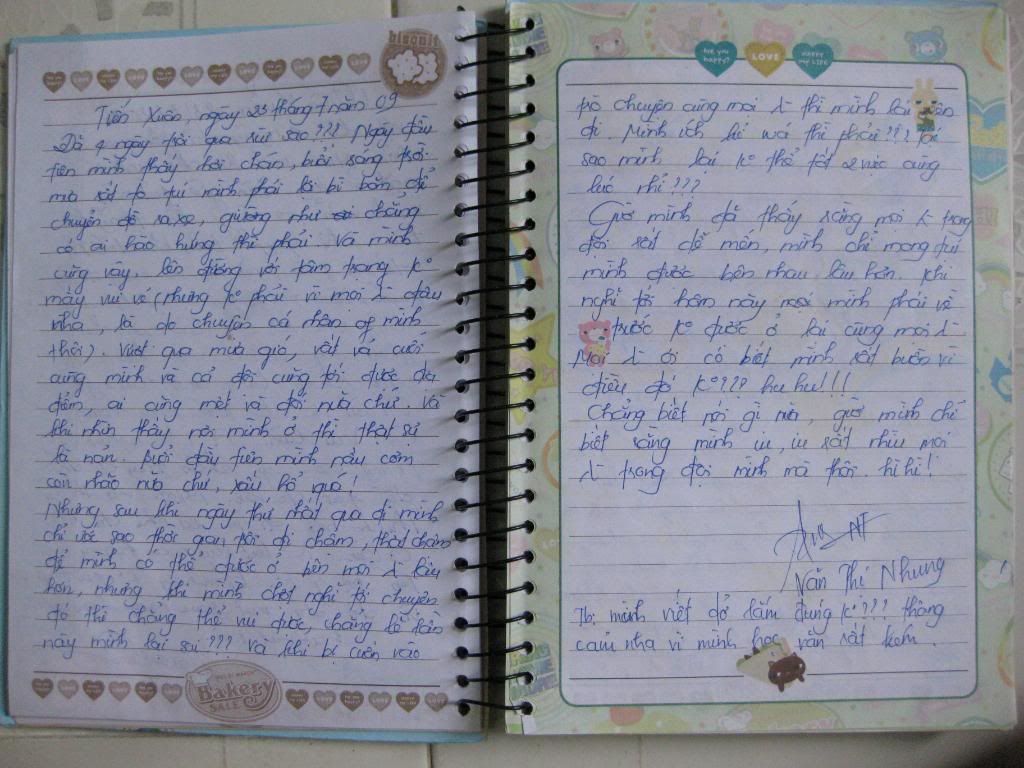 biscuit
Tiến Xuân, ngày 23 tháng 7 năm 09
Đã 4 ngày trôi qua rùi sao??? Ngày đầu
tiên mình thấy hơi chán, buổi sáng trời
mưa rất to tụi mình phải lội bì bõm để
chuyển đồ ra xe, giường như chẳng
có ai hào hứng thì phải. Và mình
cũng vậy, lên đường với tâm trạng k°
mấy vui vẻ (nhưng k° phải vì mọi λ đâu
nha, là do chuyện cá nhân of mình
thôi). Vượt qua mưa gió, vất vả cuối
cùng mình và cả đội cũng tới được địa
điểm, ai cũng mệt và đói nữa chứ. Và
khi nhìn thấy nơi mình ở thì thật sự
là nản. Buổi đầu tiên mình nấu cơm
còn nhão nữa chứ, xấu hổ quá!
Nhưng sau khi ngày thứ nhất qua đi mình
chỉ ước sao thời gian trôi đi chậm, thật chậm
để mình có thể được ở bên mọi λ lâu
hơn, nhưng khi mình chợt nghĩ tới chuyện
đó thì chẳng thể vui được, chẳng lẽ lần
này mình lại sai??? Và khi bị cuốn vào
Bakery
SALE
are you happy? LOVE HAPPY MY LIFE
trò chuyện cùng mọi λ thì mình lại
đi. Mình ích kỉ wá thì phải??? Tại
sao mình lại k° thể tốt 2 việc cùng
lúc nhỉ???
Giờ mình đã thấy rằng mọi λ trong
đội rất dễ mến, mình chỉ mong tụi
mình được bên nhau lâu hơn. Khi
nghĩ tới hôm này mình phải về
trước k° được ở lại cùng mọi λ
Mọi λ ơi có biết mình rất buồn vì
điều đó k°??? hu hu!!!
Chẳng biết nói gì nữa, giờ mình chỉ
biết rằng mình iu, iu rất nhìu mọi
λ trong đội mình mà thôi. hì hì!
Văn Thị Nhung
Tb: mình viết dở lắm đúng k°??? thông
cảm nha vì mình học văn rất kém.